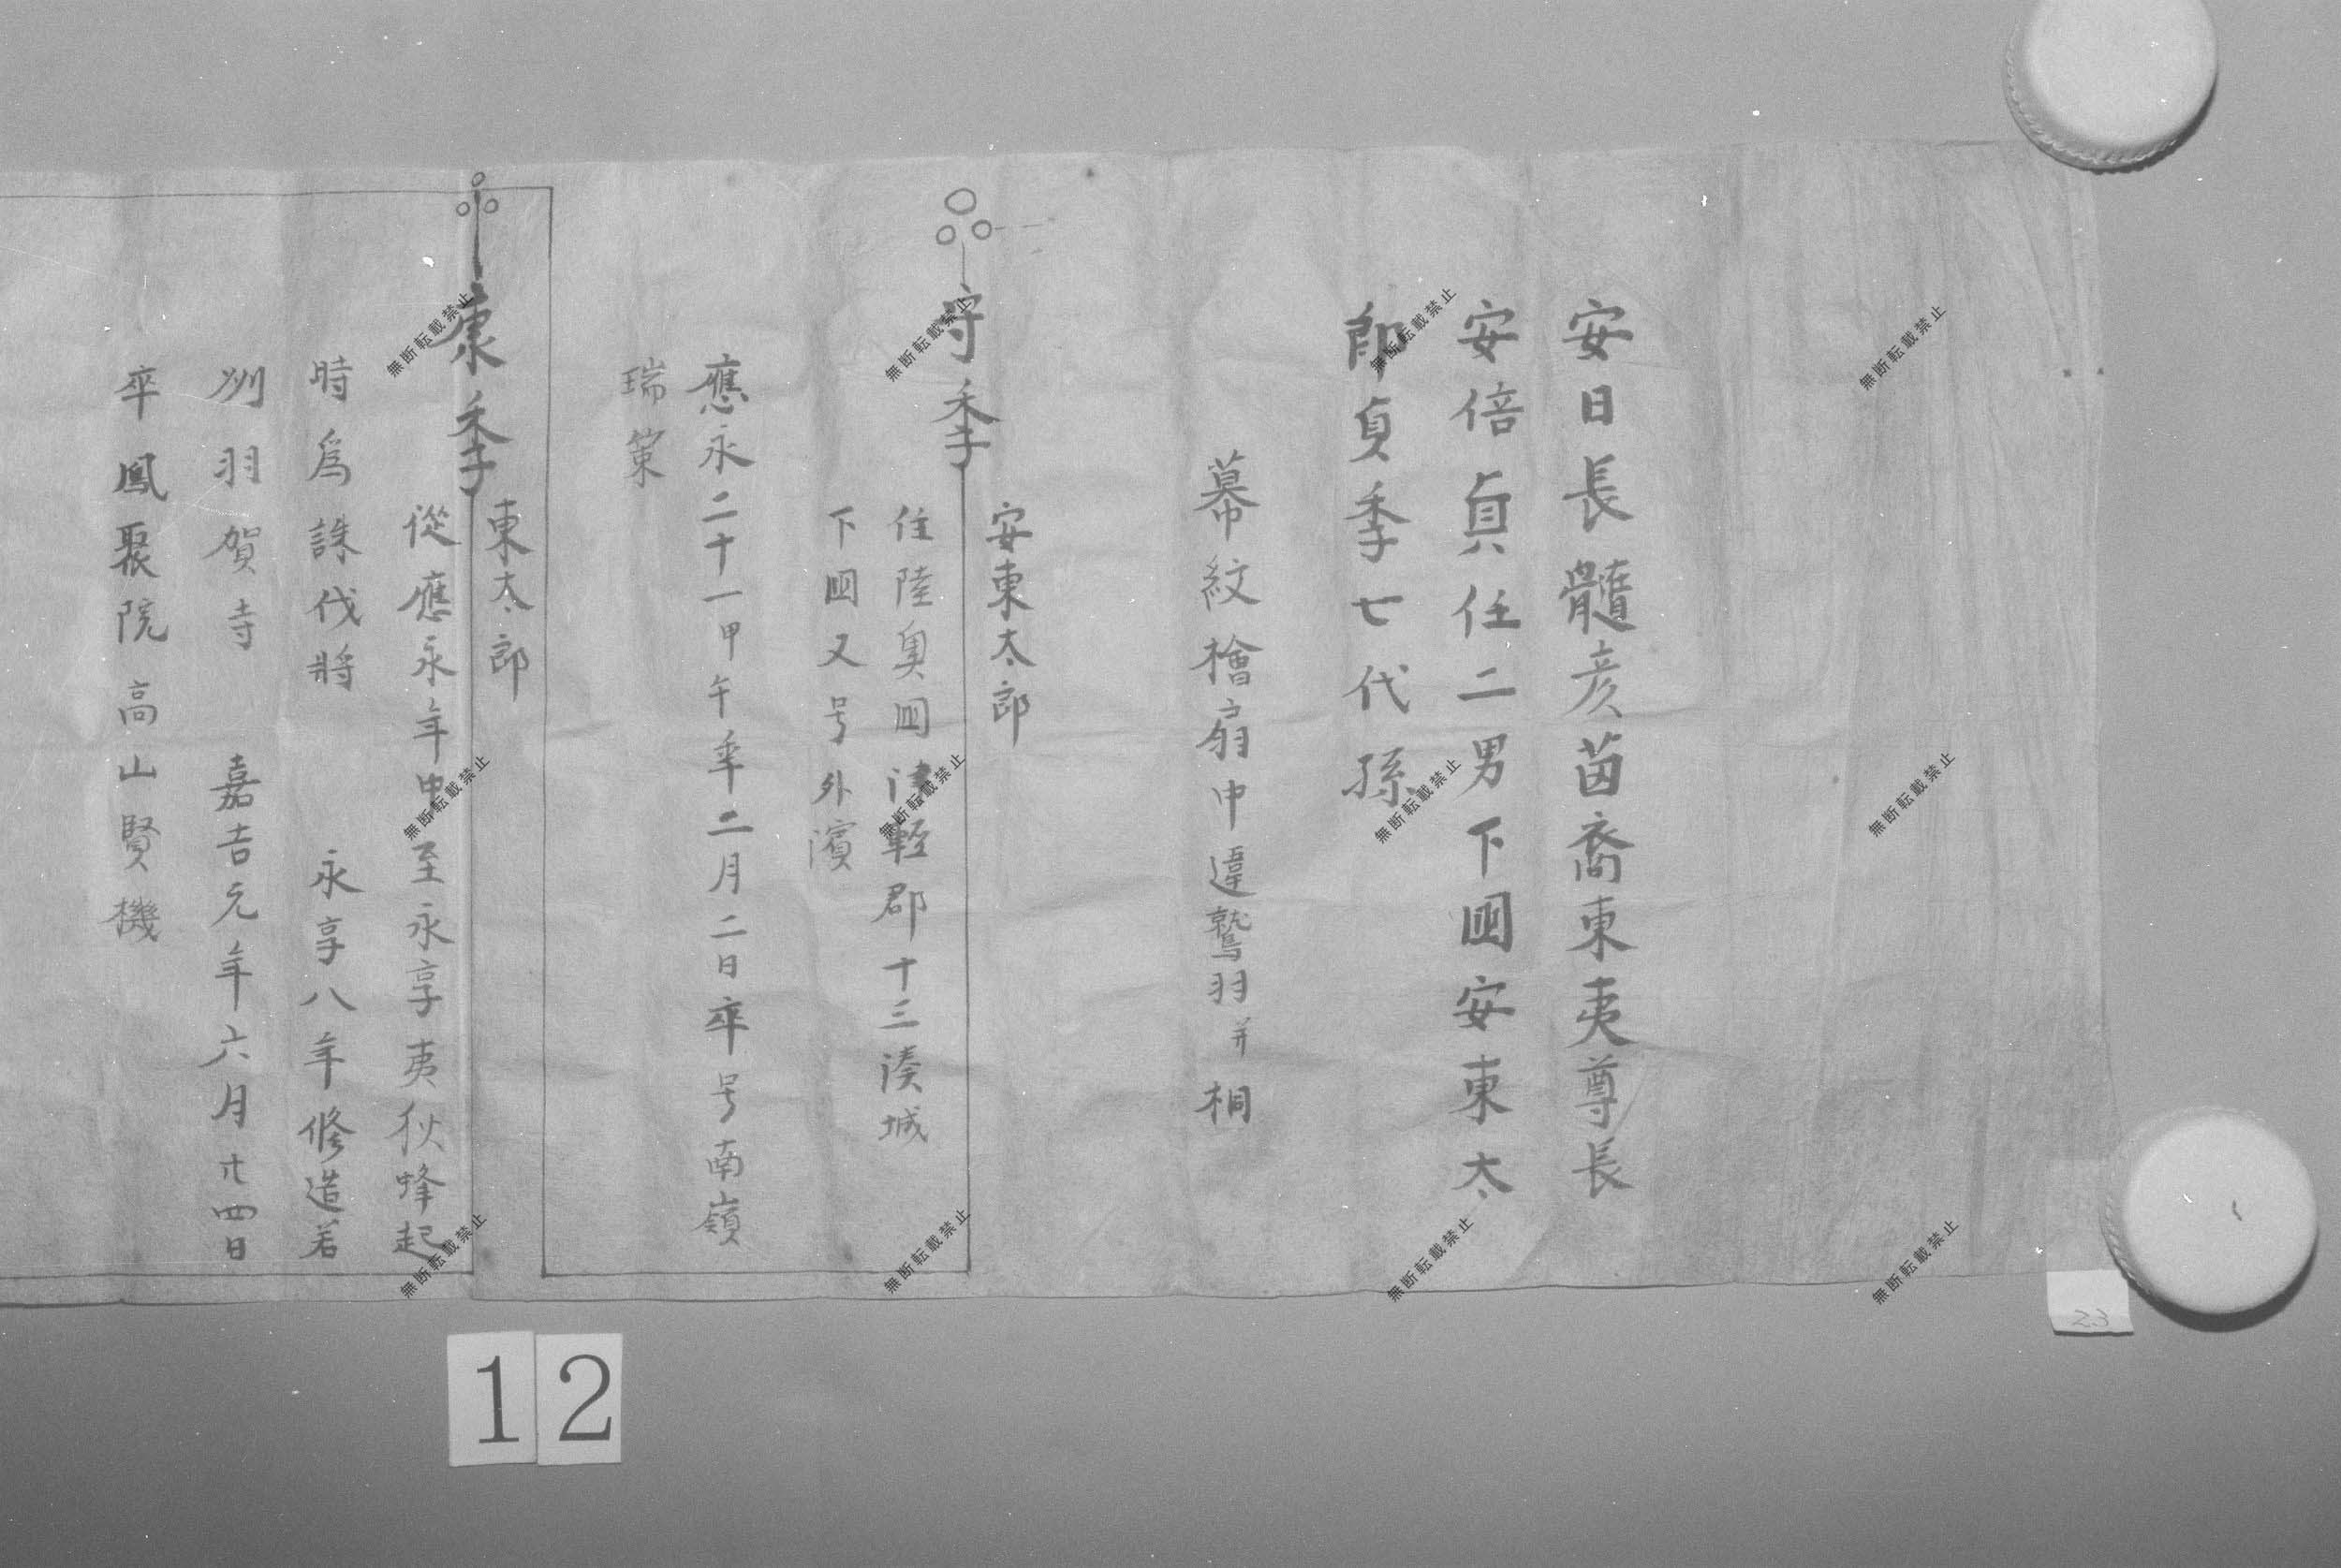 安日長髓彦苗裔東夷尊長
安倍貞任二男下國安東太
郎貞季七代孫
幕紋檜扇中違鷲羽并桐
守季
安東太郎
住陸奥国津軽郡十三湊城
下国又号外濱
應永二十一甲午年二月二日卒号南嶺
瑞策
康季
東太郎
從應永年中至永享夷狄蜂起
時爲誅伐将 永享八年修造若
州羽賀寺 嘉吉元年六月廿四日
卒鳳聚院高山賢機
12
23
無断転載禁止
無断転載禁止
無断転載禁止
無断転載禁止
無断転載禁止
無断転載禁止
無断転載禁止
無断転載禁止
無断転載禁止
無断転載禁止
無断転載禁止
無断転載禁止